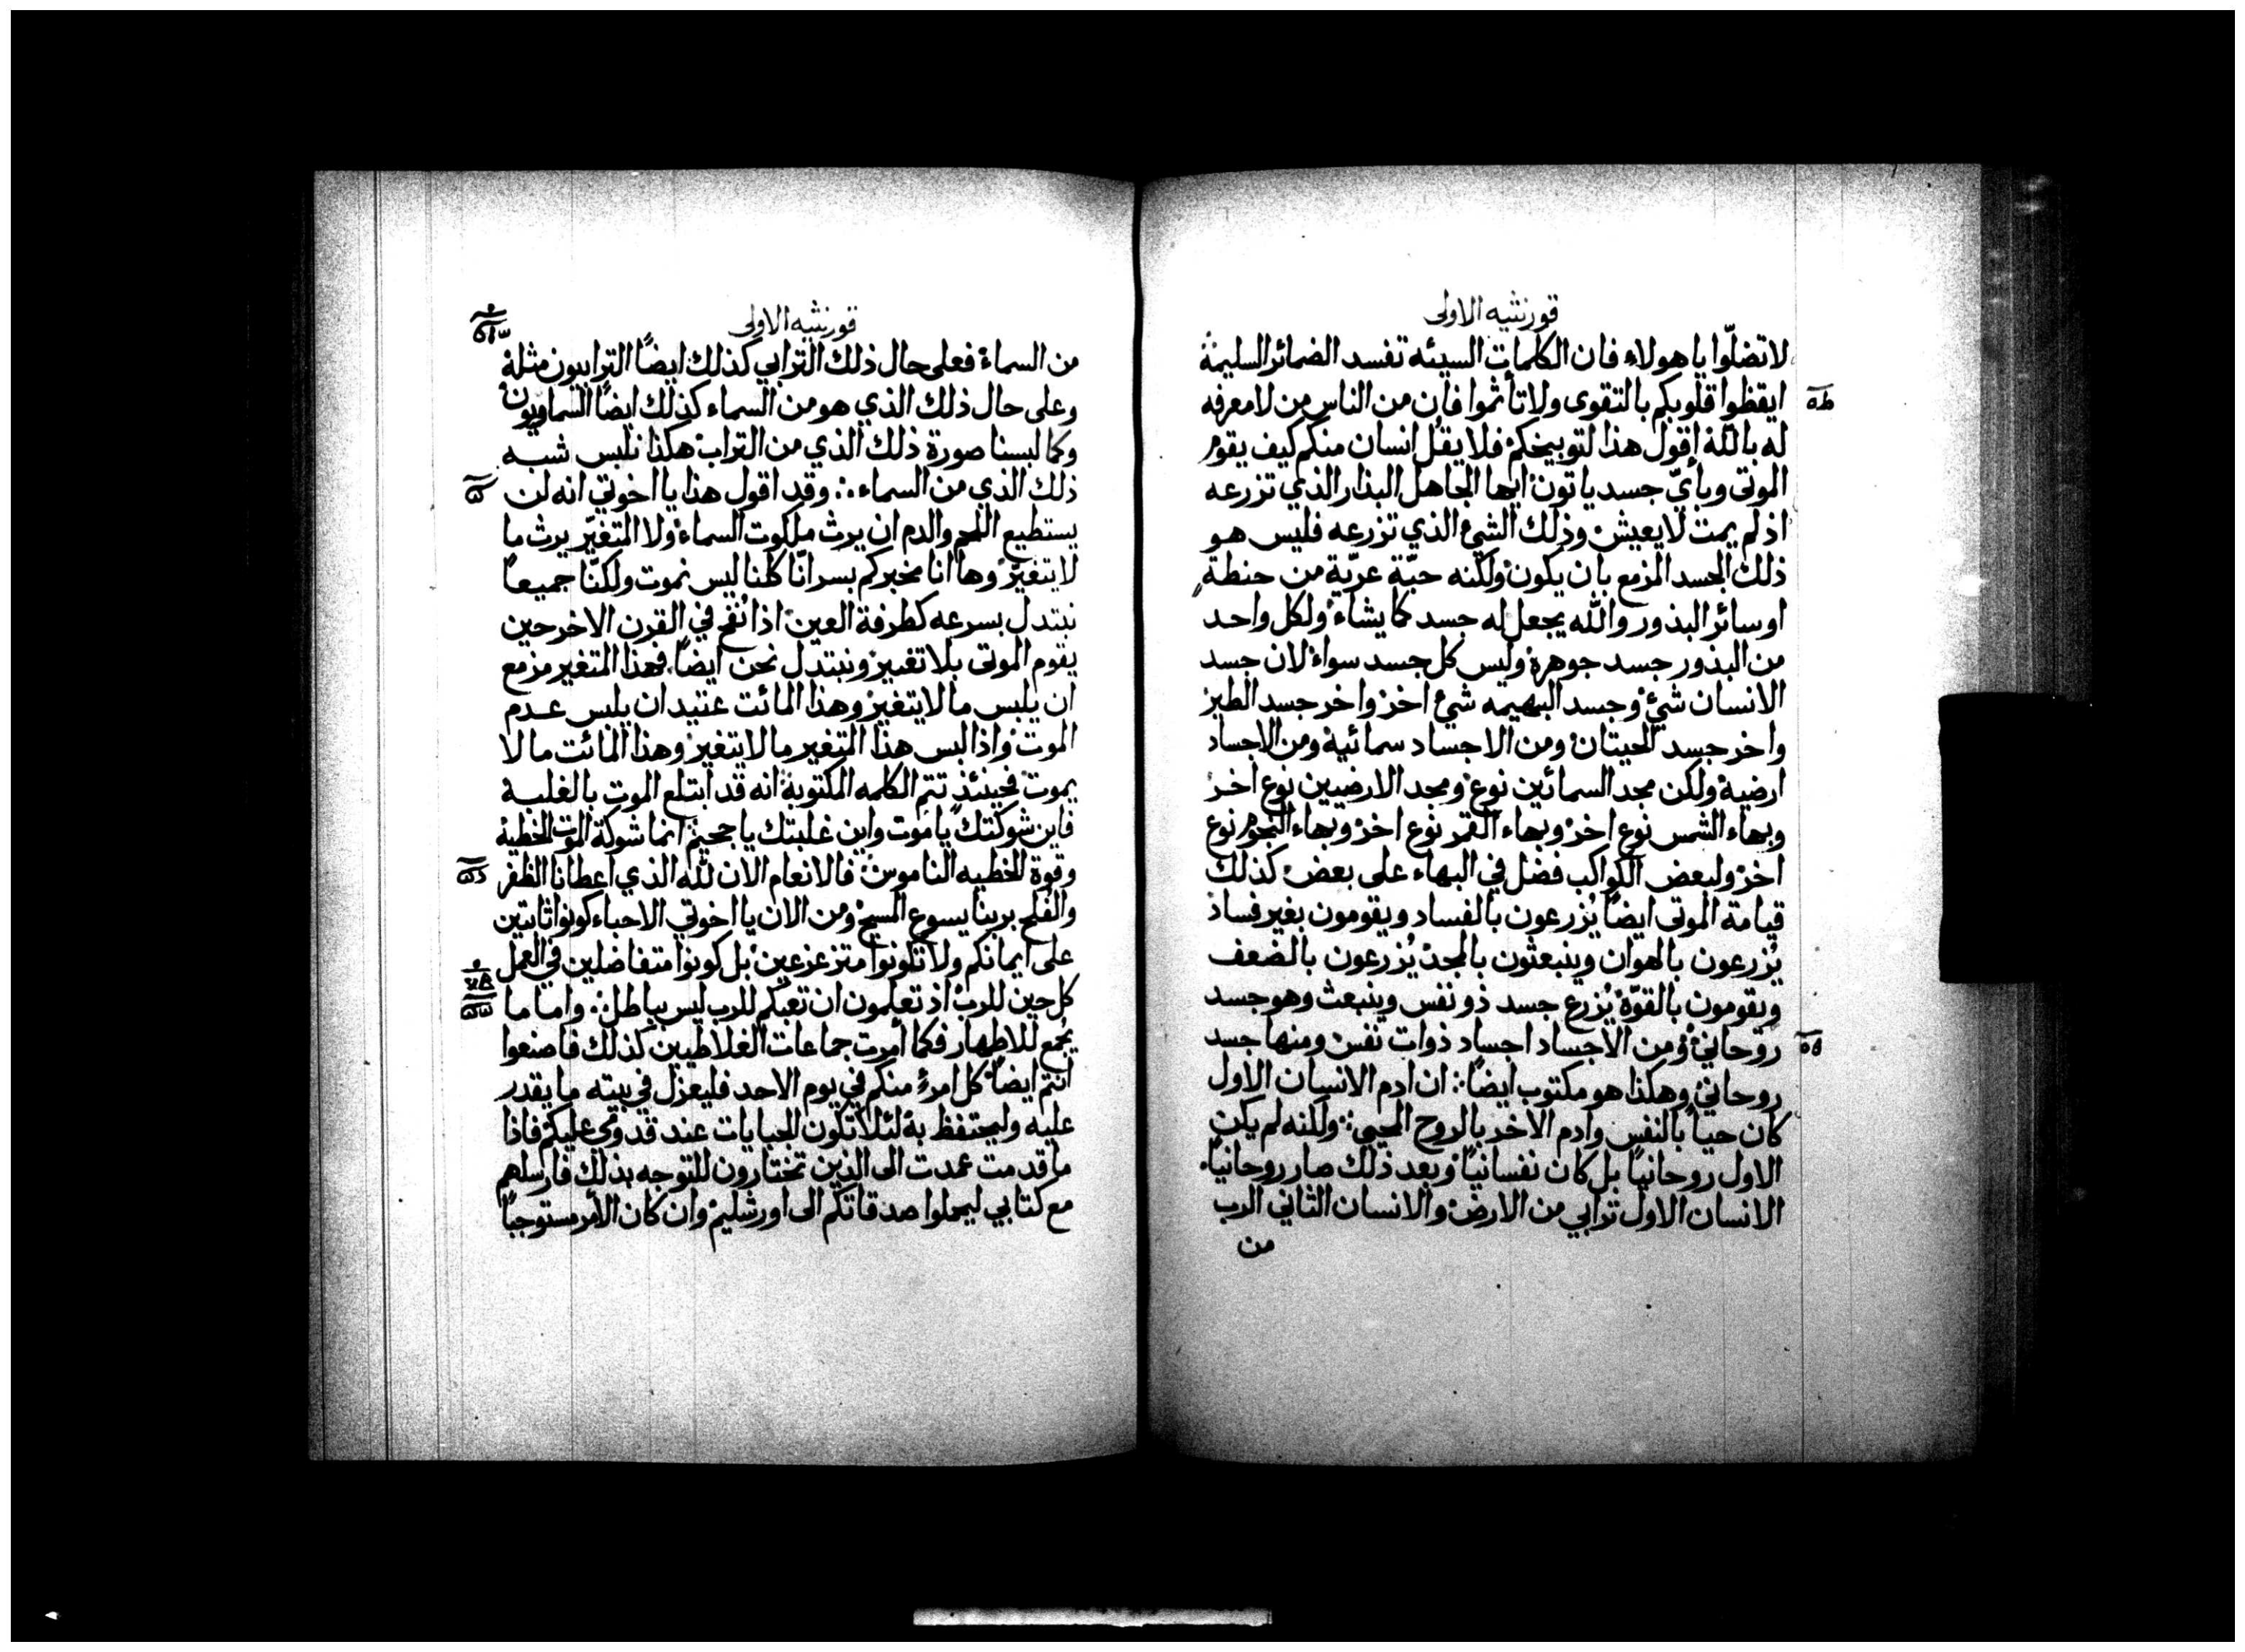 قورنثيه الاولى
لا تضلّوا يا هولاء فان الكلمات السيئه تفسد الضمائر السليمة
ايقظوا قلوبكم بالتقوى ولا تأثموا فان من الناس من لا معرفه
له بالله اقول هذا لتوبيخكم فلا يقُل انسان منكم كيف يقوم
الموتى وبأيّ جسد ياتون ايها الجاهل البذار الذي تزرعه
اذ لم يمت لا يعيش وذلك الشيء الذي تزرعه فليس هو
ذلك الجسد المزمع بان يكون ولكنه حبّة عريّة من حنطة
او سائر البذور والله يجعل له جسد كما يشاء ولكل واحد
من البذور جسد جوهره وليس كل جسد سواء لان جسد
الانسان شيء وجسد البهيمه شيء اخر واخر جسد الطير
واخر جسد الحيتان ومن الاجساد سمائية ومن الاجساد
ارضية ولكن مجد السمائين نوع ومجد الارضيين نوع اخر
وبهاء الشمس نوع اخر وبهاء القمر نوع اخر وبهاء النجوم نوع
اخر ولبعض الكواكب فضل في البهاء على بعض كذلك
قيامة الموتى ايضًا يُزرعون بالفساد ويقومون بغير فساد
يُزرعون بالهوان وينبعثون بالمجد يُزرعون بالضعف
ويقومون بالقوّة يُزرع جسد ذو نفس وينبعث وهو جسد
روحاني ومن الاجساد اجساد ذوات نفس ومنها جسد
روحاني وهكذا هو مكتوب ايضًا ان ادم الانسان الاول
كان حيًا بالنفس وادم الاخر بالروح المحيي ولكنه لم يكن
الاول روحانيًا بل كان نفسانيًا وبعد ذلك صار روحانيًا
الانسان الاول ترابي من الارض والانسان الثاني الرب
من
قورنثيه الاولى
من السماء فعلى حال ذلك الترابي كذلك ايضًا الترابيون مثله
وعلى حال ذلك الذي هو من السماء كذلك ايضًا السماويون
وكما لبسنا صورة ذلك الذي من التراب هكذا نلبس شبه
ذلك الذي من السماء وقد اقول هذا يا اخوتي انه لن
يستطيع اللحم والدم ان يرث ملكوت السماء ولا المتغيّر يرث ما
لا يتغيّر وها انا مخبركم بسر انّا كلنا ليس نموت ولكنّا جميعًا
نبتدل بسرعه كطرفة العين اذا نُفخ في القرن الاخر حين
يقوم الموتى بلا تغيير ونبتدل نحن ايضًا فهذا المتغير مزمع
ان يلبس ما لا يتغير وهذا المائت عتيد ان يلبس عدم
الموت واذا لبس هذا المتغير ما لا يتغير وهذا المائت ما لا
يموت فحينئذٍ تتم الكلمه المكتوبة انه قد ابتلع الموت بالغلبة
فاين شوكتك يا موت واين غلبتك يا جحيم انما شوكة الموت الخطية
وقوة الخطيه الناموس فالانعام الان لله الذي اعطانا الظفر
والفُلج بربنا يسوع المسيح ومن الان يا اخوتي الاحباء كونوا ثابتين
على ايمانكم ولا تكونوا متزعزعين بل كونوا متفاضلين في العمل
كل حين للرب اذ تعلمون ان تعبكم للرب ليس بباطل واما ما
يُجمع للاطهار فكما أمرت جماعات الغلاطيين كذلك فاصنعوا
انتم ايضًا كل امرءٍ منكم في يوم الاحد فليعزل في بيته ما يقدر
عليه وليحتفظ به لئلا تكون الجبايات عند قدومي عليكم فاذا
ما قدمت عمدت الى الذين تختارون للتوجه بذلك فارسلهم
مع كتابي ليحملوا صدقاتكم الى اورشليم وان كان الأمر مستوجبًا